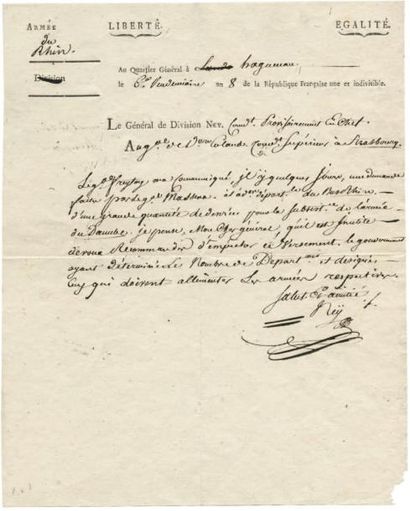 ARMÉE LIBERTÉ. EGALITÉ.
du
Rhin
Division
Au Quartier Général à haguenau
le Vendemiaire an 8 de la République Française une et indivisible.
Le Général de Division Ney, Comd.t Provisoirement En Chef
Au g.al de D.on Comd.t Supérieur à Strasbourg
Le g.al Freytag m'a Communiqué, il y a quelques jours, une demande
faite par le g.al Masséna et du départ. du Bas Rhin
d'une grande quantité de denrées pour la subsist.ce de l'armée
du Danube. je pense, Mon Cher général, qu'il est inutile
de vous Recommander d'empêcher ce Versement, le gouvernement
ayant déterminé Le Nombre de Départ. et désigné
Ceux qui doivent alimenter Les armées respectives.
Salut Et amitié
Ney